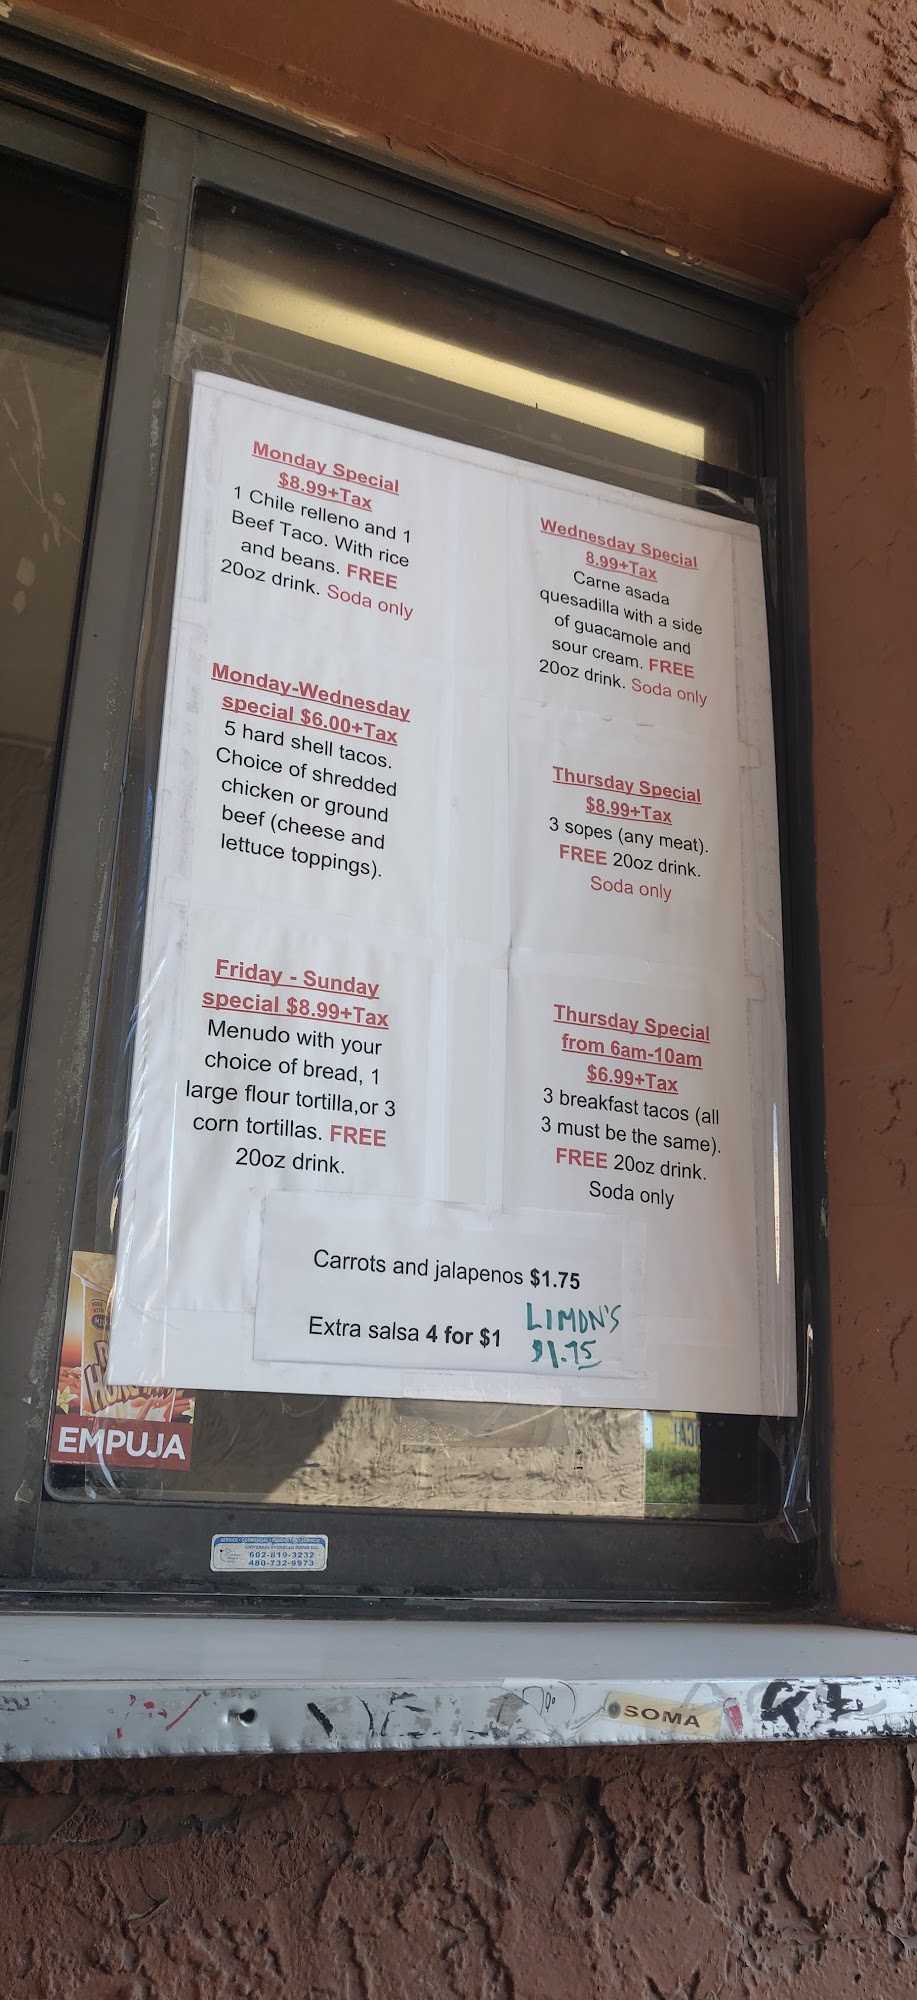 Monday Special
$8.99+Tax
1 Chile relleno and 1
Beef Taco. With rice
and beans. FREE
20oz drink. Soda only
Monday-Wednesday
special $6.00+Tax
5 hard shell tacos.
Choice of shredded
chicken or ground
beef (cheese and
lettuce toppings).
Friday - Sunday
special $8.99+Tax
Menudo with your
choice of bread, 1
large flour tortilla,or 3
corn tortillas. FREE
20oz drink.
Wednesday Special
8.99+Tax
Carne asada
quesadilla with a side
of guacamole and
sour cream. FREE
20oz drink. Soda only
Thursday Special
$8.99+Tax
3 sopes (any meat).
FREE 20oz drink.
Soda only
Thursday Special
from 6am-10am
$6.99+Tax
3 breakfast tacos (all
3 must be the same).
FREE 20oz drink.
Soda only
Carrots and jalapenos $1.75
Extra salsa 4 for $1
LIMON'S
$1.75
EMPUJA
602-819-3232
480-732-9973
SOMA